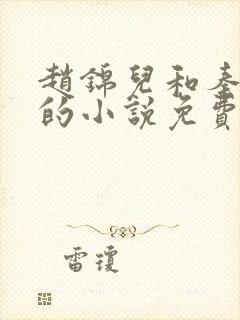 趙錦兒和秦
的小說免費
雷瓊